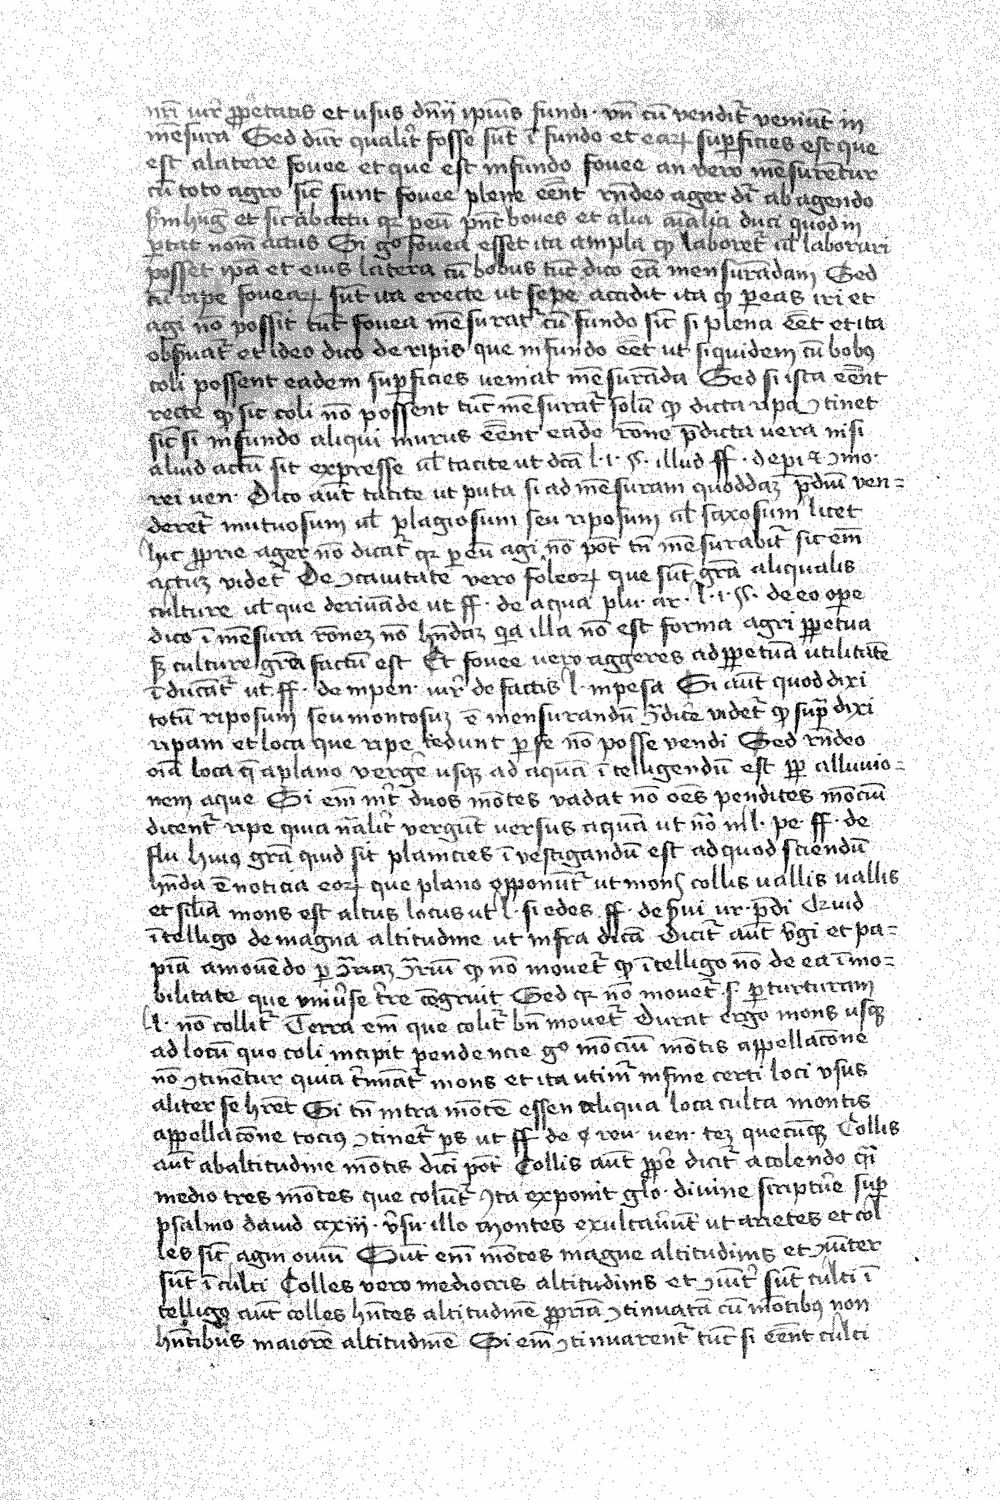 nr̄i iur̄ ꝓpetatis et usus dn̄ij ip̄ius fundi · vn̄ cū vendit᷑ veniūt in
mēsura Sed dur̄ qualit᷑ fosse sūt ī fundo et eaꝝ suꝑficies est que
est alatere fouee et que est infundo fouee an vero mēsurētur
cū toto agro sic̄ sunt fouee plene eēnt rn̄deo ager dr̄ ab agendo
et sic abactu qꝛ ꝑ eū pn̄t boues et alia aīalia duci quod in
ꝑtat nom̄ actus Si gͦ fouea esset ita ampla ꝙ laboret᷑ ul̄ laborari
posset ip̄a et eius latera cū bobus tūc dico eā mensurādam Sed
cū ripe foueaꝝ sūt ita erecte ut sepe accidit ita ꝙ ꝑ eas iri et
agi nō possit tūc fouea mēsurat᷑ cū fundo sic̄ si plena eēt et ita
obs̄uat᷑ et ideo dico de ripis que infundo eēt ut siquidem cū bobꝰ
coli possent eadem suꝑficies ueniat mēsurāda Sed si ista eēnt
recte ꝙ sic coli nō possent tūc mēsurat᷑ solū ꝙ dicta ripa ꝯtinet
sic̄ si infundo aliqui murus eēnt eadē rōne p̄dicta vera nisi
aliud actū sit expresse ul̄ tacite ut dc̄a l · i · §. illud ff · de ꝑi ⁊ ꝯmo ·
rei uen · Dico aūt tacite ut puta si ad mēsuram quoddaꝫ p̄diū ven=
deret᷑ mutuosum ul̄ plagiosum seu riposum ul̄ saxosum licet
huc ꝓprie ager nō dicat᷑ qꝛ ꝑ eū agi nō pōt tn̄ mēsurabit᷑ sic em̄
actuꝫ videt᷑ De ꝯcauitate vero foleoꝝ que sūt gr̄a aliqualis
culture ul̄ que deriuāde ut ff · de aqua plu · ar · l · i · §. de eo oꝑe
dico ī mēsura rōneꝫ nō hn̄daꝫ qͥa illa nō est forma agri ꝑpetua
ſꝫ culture gr̄a factū est Et fouee uero aggeres ad ꝑpetuā utilitatē
īducāt᷑ ut ff · de inpen · iur̄ de factis l · inpesa Si aūt quod dixi
totū riposum seu montosuꝫ ē mensurandū ꝯ̄dic̄e videt᷑ ꝙ sup̄ dixi
ripam et loca que ripe cedunt ꝑ se nō posse vendi Sed rn̄deo
oīa loca q̄ aplano verḡe usqꝫ ad aquā ītelligendū est ꝓp alluuio=
nem aque Si em̄ int̄ duos mōtes vadat nō oēs pendices mōciū
dicent᷑ ripe quia n̄alit᷑ vergūt versus aquā ut nō in l · pe · ff · de
flu huiꝰ gr̄a quid sit planicies īvestigandū est ad quod sciendū
hn̄da ē noticia eoꝝ que plano opponūt᷑ ut mons collis uallis uallis
et sil̄ia mons est altus locus ut l · si edes ff · de s̄ui ur · p̄di Quid
ītelligo de magna altitudine ut infra dicā Dicit᷑ aūt v̄gi et pa=
piā amouēdo ꝑ ꝯ̄riaꝫ ꝯ̄riū ꝙ nō mouet᷑ ꝙ ītelligo nō de ea īmo=
bilitate que uniu̓se t̄re cōgruit Sed qꝛ nō mouet᷑ .s. ꝑ turturam
l · nō collit᷑ Terra em̄ que colit᷑ bn̄ mouet᷑ Durat ergo mons usqꝫ
ad locū quo coli incipit pendencie gͦ mōciū mōtis appellacōne
nō ꝯtinētur quia t̄mināt᷑ mons et ita utim᷑ in fine certi loci vsus
aliter se hr̄et Si tn̄ intra mōtē essen aliqua loca culta montis
appellacōne tociꝰ ꝯtinet᷑ ps ut ff de ꝯ reu · uen · teꝫ quecūqꝫ Collis
aūt abaltitudine mōtis dici pōt Collis aūt ꝓpe dicit᷑ a colendo qͥ
medio tres mōtes que colūt᷑ ꝯta exponit glo · diuine scriptur̄e sup̄
psalmo dauid cxiii · v̄su · illo montes exultauerūt ut arietes et col
les sic̄ agni ouiū Sūt em̄ mōtes magne altitudinis et ꝯiūter
sūt īculti Colles vero mediocris altitudinis et ꝯiūt᷑ sūt culti ī
telligo aūt colles hn̄tes altitudinē ꝓpriā ꝯtinuatā cū mōtibꝰ non
hn̄tibus maiorē altitudinē Si em̄ ꝯtinuarent᷑ tūc si eēnt culti